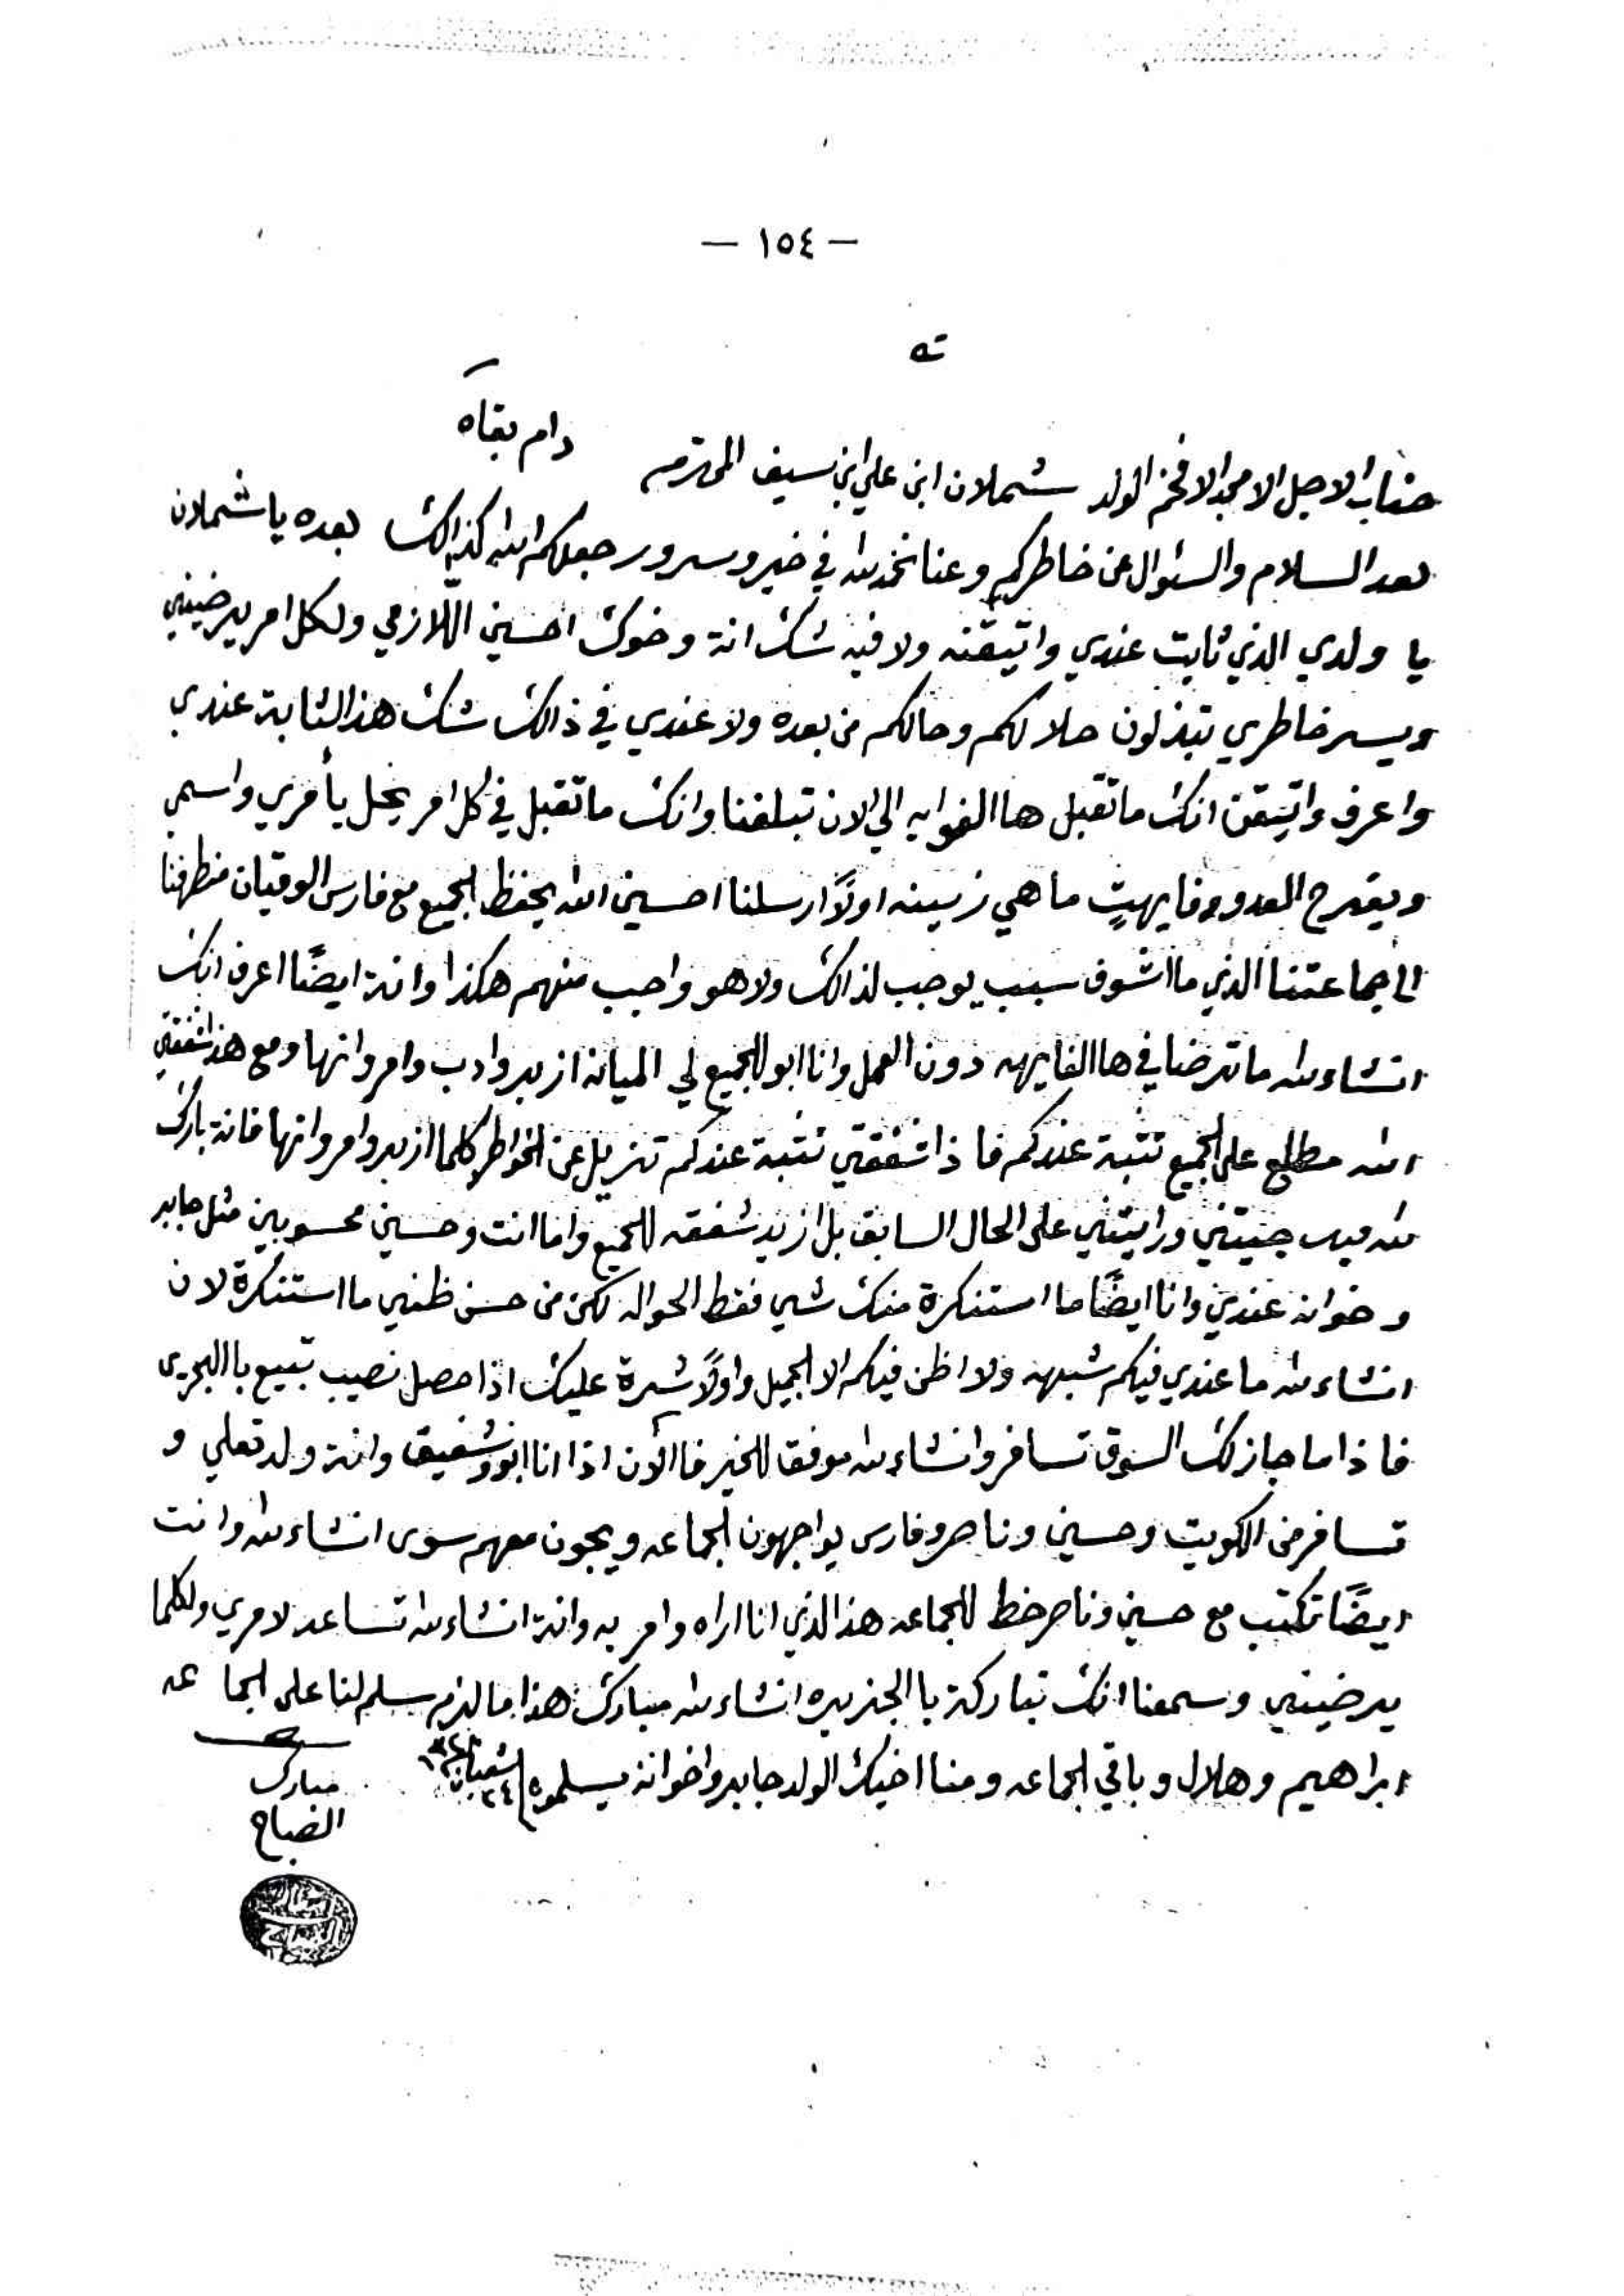 — ١٥٤ —
جناب الاجل الامجد الافخم الولد شملان ابن علي ابن سيف المحترم دام بقاه
بعد السلام والسئوال عن خاطركم وعنا نحمد الله في خير وسرور جعلكم الله كذالك بعده يا شملان
يا ولدي الذي ثابت عندي واتيقنه ولا فيه شك انة وخوك احسين اللازمي ولكل امر يرضيني
ويسر خاطري تبذلون حلالكم وحالكم من بعده ولا عندي في ذالك شك هذا الثابة عندي
واعرف واتيقن انك ما تقبل هاالغوايه الي الان تبلغنا وانك ما تقبل في كل امر يخل يأمري واسمي
ويفرح العدو وفايهتٍ ما هي زينه اولًا ارسلنا احسين الله يحفظ الجميع مع فارس الوقيان منطرفنا
الى جماعتنا الذي ما اشوف سبب يوجب لذالك ولا هو واجب منهم هكذا وانة ايضًا اعرف انك
انشاء الله ما ترضا في هاالفايهه دون العمل وانا ابو للجميع لي الميانه ازبر وادب وامر وانها ومع هذا شفقتي
الله مطلع على الجميع تثبة عندكم فاذا شفقتي تثبة عندكم تزيل عن الخواطر كلما ازبر وامر وانها فانة بارك
الله فيك جيتني ورايتني على الحال السابق بل ازيد شفقه للجميع واما انت وحسين محسوبين مثل جابر
وخوانه عندي وانا ايضًا ما استنكرة منك شي فقط الحواله لكن من حسن ظني ما استنكرة لان
انشاء الله ما عندي فيكم شبهه ولا اظن فيكم الا الجميل واولًا شرة عليك اذا حصل نصيب تبيع باالبحرين
فاذا ما جاز لك السوق تسافر وانشاء الله موفقا للخير فاالأن اذا انا ابو وشفيق وانة ولد تعلي و
تسافر من الكويت وحسين وناصر وفارس يواجهون الجماعه ويجون معهم سوى انشاء الله وانت
ايضًا تكتب مع حسين وناصر خط للجماعه هذا الذي انا اراه وامر به وانة انشاء الله تساعد لامري ولكلما
يرضيني وسمعنا انك تباركة باالجزيره انشاء الله مبارك هذا ما لزم سلم لنا على الجماعه
ابراهيم وهلال وباقي الجماعه ومنا اخيك الولد جابر واخوانه يسلموه ٢٤ شعبان
مبارك
الصباح